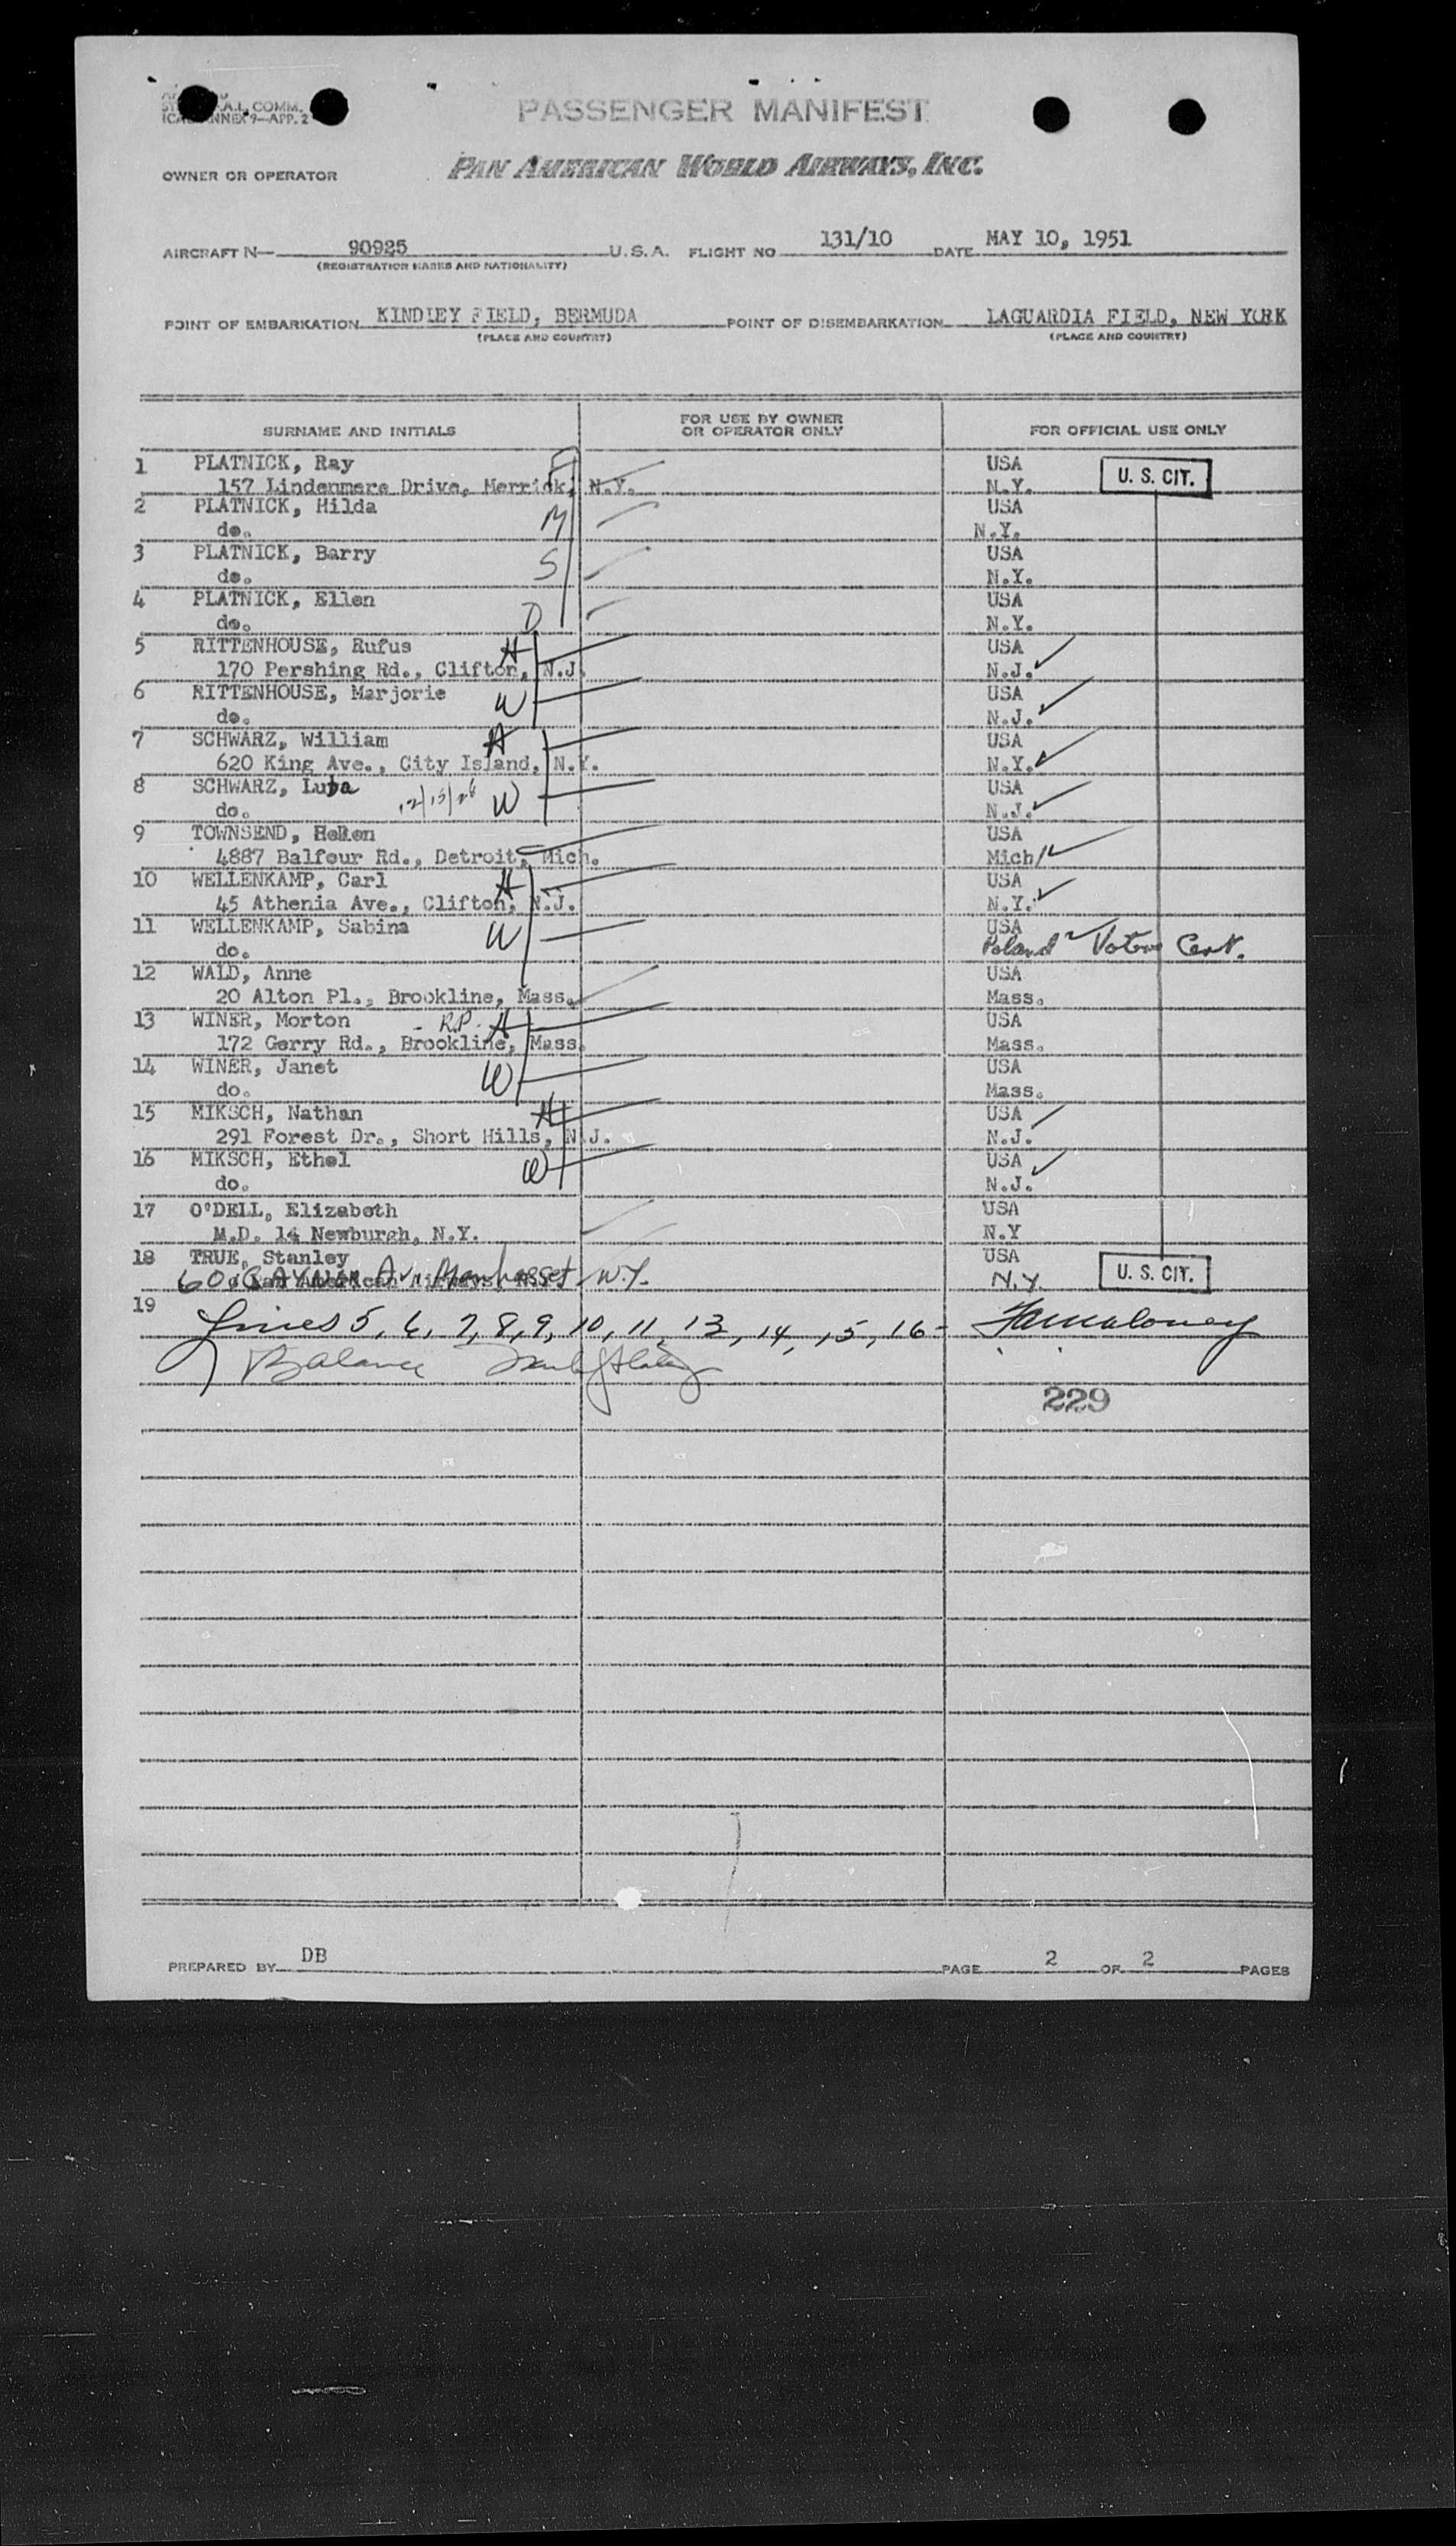 A.I. COMM.
ICAO ANNEX 9—APP. 2
PASSENGER MANIFEST
OWNER OR OPERATOR PAN AMERICAN WORLD AIRWAYS, INC.
AIRCRAFT N— 90925 U.S.A. FLIGHT NO 131/10 DATE MAY 10, 1951
(REGISTRATION MARKS AND NATIONALITY)
POINT OF EMBARKATION KINDLEY FIELD, BERMUDA POINT OF DISEMBARKATION LAGUARDIA FIELD, NEW YORK
(PLACE AND COUNTRY) (PLACE AND COUNTRY)
SURNAME AND INITIALS FOR USE BY OWNER OR OPERATOR ONLY FOR OFFICIAL USE ONLY
1 PLATNICK, Ray F USA U. S. CIT.
157 Lindenmere Drive, Merrick, N.Y. N.Y.
2 PLATNICK, Hilda M USA
do. N.Y.
3 PLATNICK, Barry S USA
do. N.Y.
4 PLATNICK, Ellen D USA
do. N.Y.
5 RITTENHOUSE, Rufus H USA
170 Pershing Rd., Clifton, N.J. N.J.
6 RITTENHOUSE, Marjorie W USA
do. N.J.
7 SCHWARZ, William H USA
620 King Ave., City Island, N.Y. N.Y.
8 SCHWARZ, Luba 12/15/26 W USA
do. N.J.
9 TOWNSEND, Helen USA
4887 Balfour Rd., Detroit, Mich. Mich
10 WELLENKAMP, Carl H USA
45 Athenia Ave., Clifton, N.J. N.Y.
11 WELLENKAMP, Sabina W USA
do. Poland Voters Cert.
12 WALD, Anne USA
20 Alton Pl., Brookline, Mass. Mass.
13 WINER, Morton - R.P. - H USA
172 Gerry Rd., Brookline, Mass. Mass.
14 WINER, Janet W USA
do. Mass.
15 MIKSCH, Nathan H USA
291 Forest Dr., Short Hills, N.J. N.J.
16 MIKSCH, Ethel W USA
do. N.J.
17 O'DELL, Elizabeth USA
M.D. 14 Newburgh, N.Y. N.Y
18 TRUE, Stanley USA
60 Av. Manhasset N.Y. N.Y. U. S. CIT.
19 Lines 5, 6, 7, 8, 9, 10, 11, 13, 14, 15, 16 -
Balance
229
PREPARED BY DB PAGE 2 OF 2 PAGES